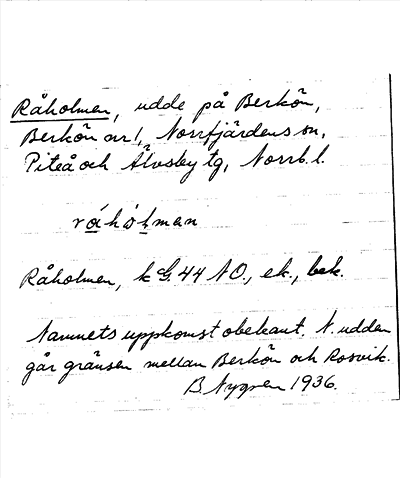 Råholmen, udde på Berkön,
Berkön nr 1, Norrfjärdens sn,
Piteå och Älvsby tg, Norrb. l.
råhólman
Råholmen, k G. 44 NO., ek., bek.
Namnets uppkomst obekant. N. udden
går gränsen mellan Berkön och Rosvik.
B. Nygren 1936.